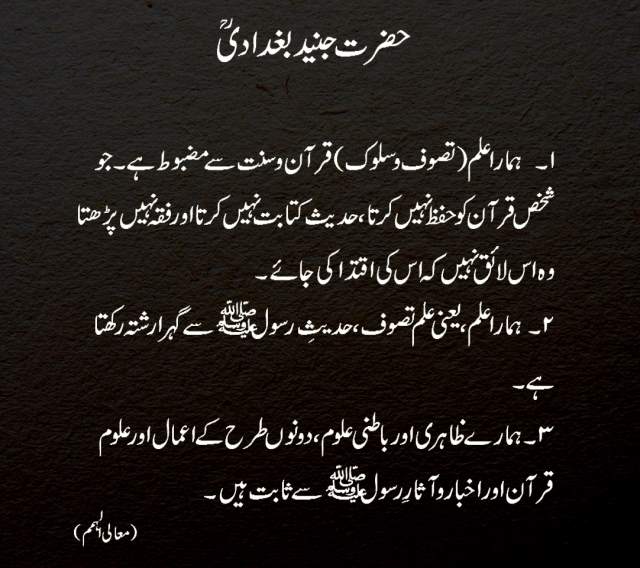 حضرت جنید بغدادیؒ
۱۔ ہمارا علم (تصوف و سلوک) قرآن و سنت سے مضبوط ہے۔ جو
شخص قرآن کو حفظ نہیں کرتا، حدیث کتابت نہیں کرتا اور فقہ نہیں پڑھتا
وہ اس لائق نہیں کہ اس کی اقتدا کی جائے۔
۲۔ ہمارا علم، یعنی علم تصوف، حدیثِ رسول ﷺ سے گہرا رشتہ رکھتا
ہے۔
۳۔ ہمارے ظاہری اور باطنی علوم، دونوں طرح کے اعمال اور علوم
قرآن اور اخبار و آثارِ رسول ﷺ سے ثابت ہیں۔
(معالی الہمم)